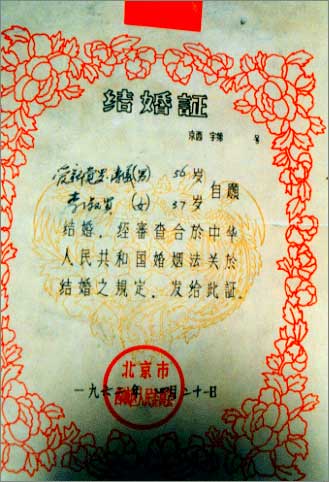 结婚証
京西 字第 号
愛新覺羅·溥儀(男) 56岁
李淑賢 (女) 37岁
自願
结婚，经審查合於中华
人民共和国婚姻法关於
结婚之規定，发给此証．
北京市
人民委員会
一九六 年 月二十一日